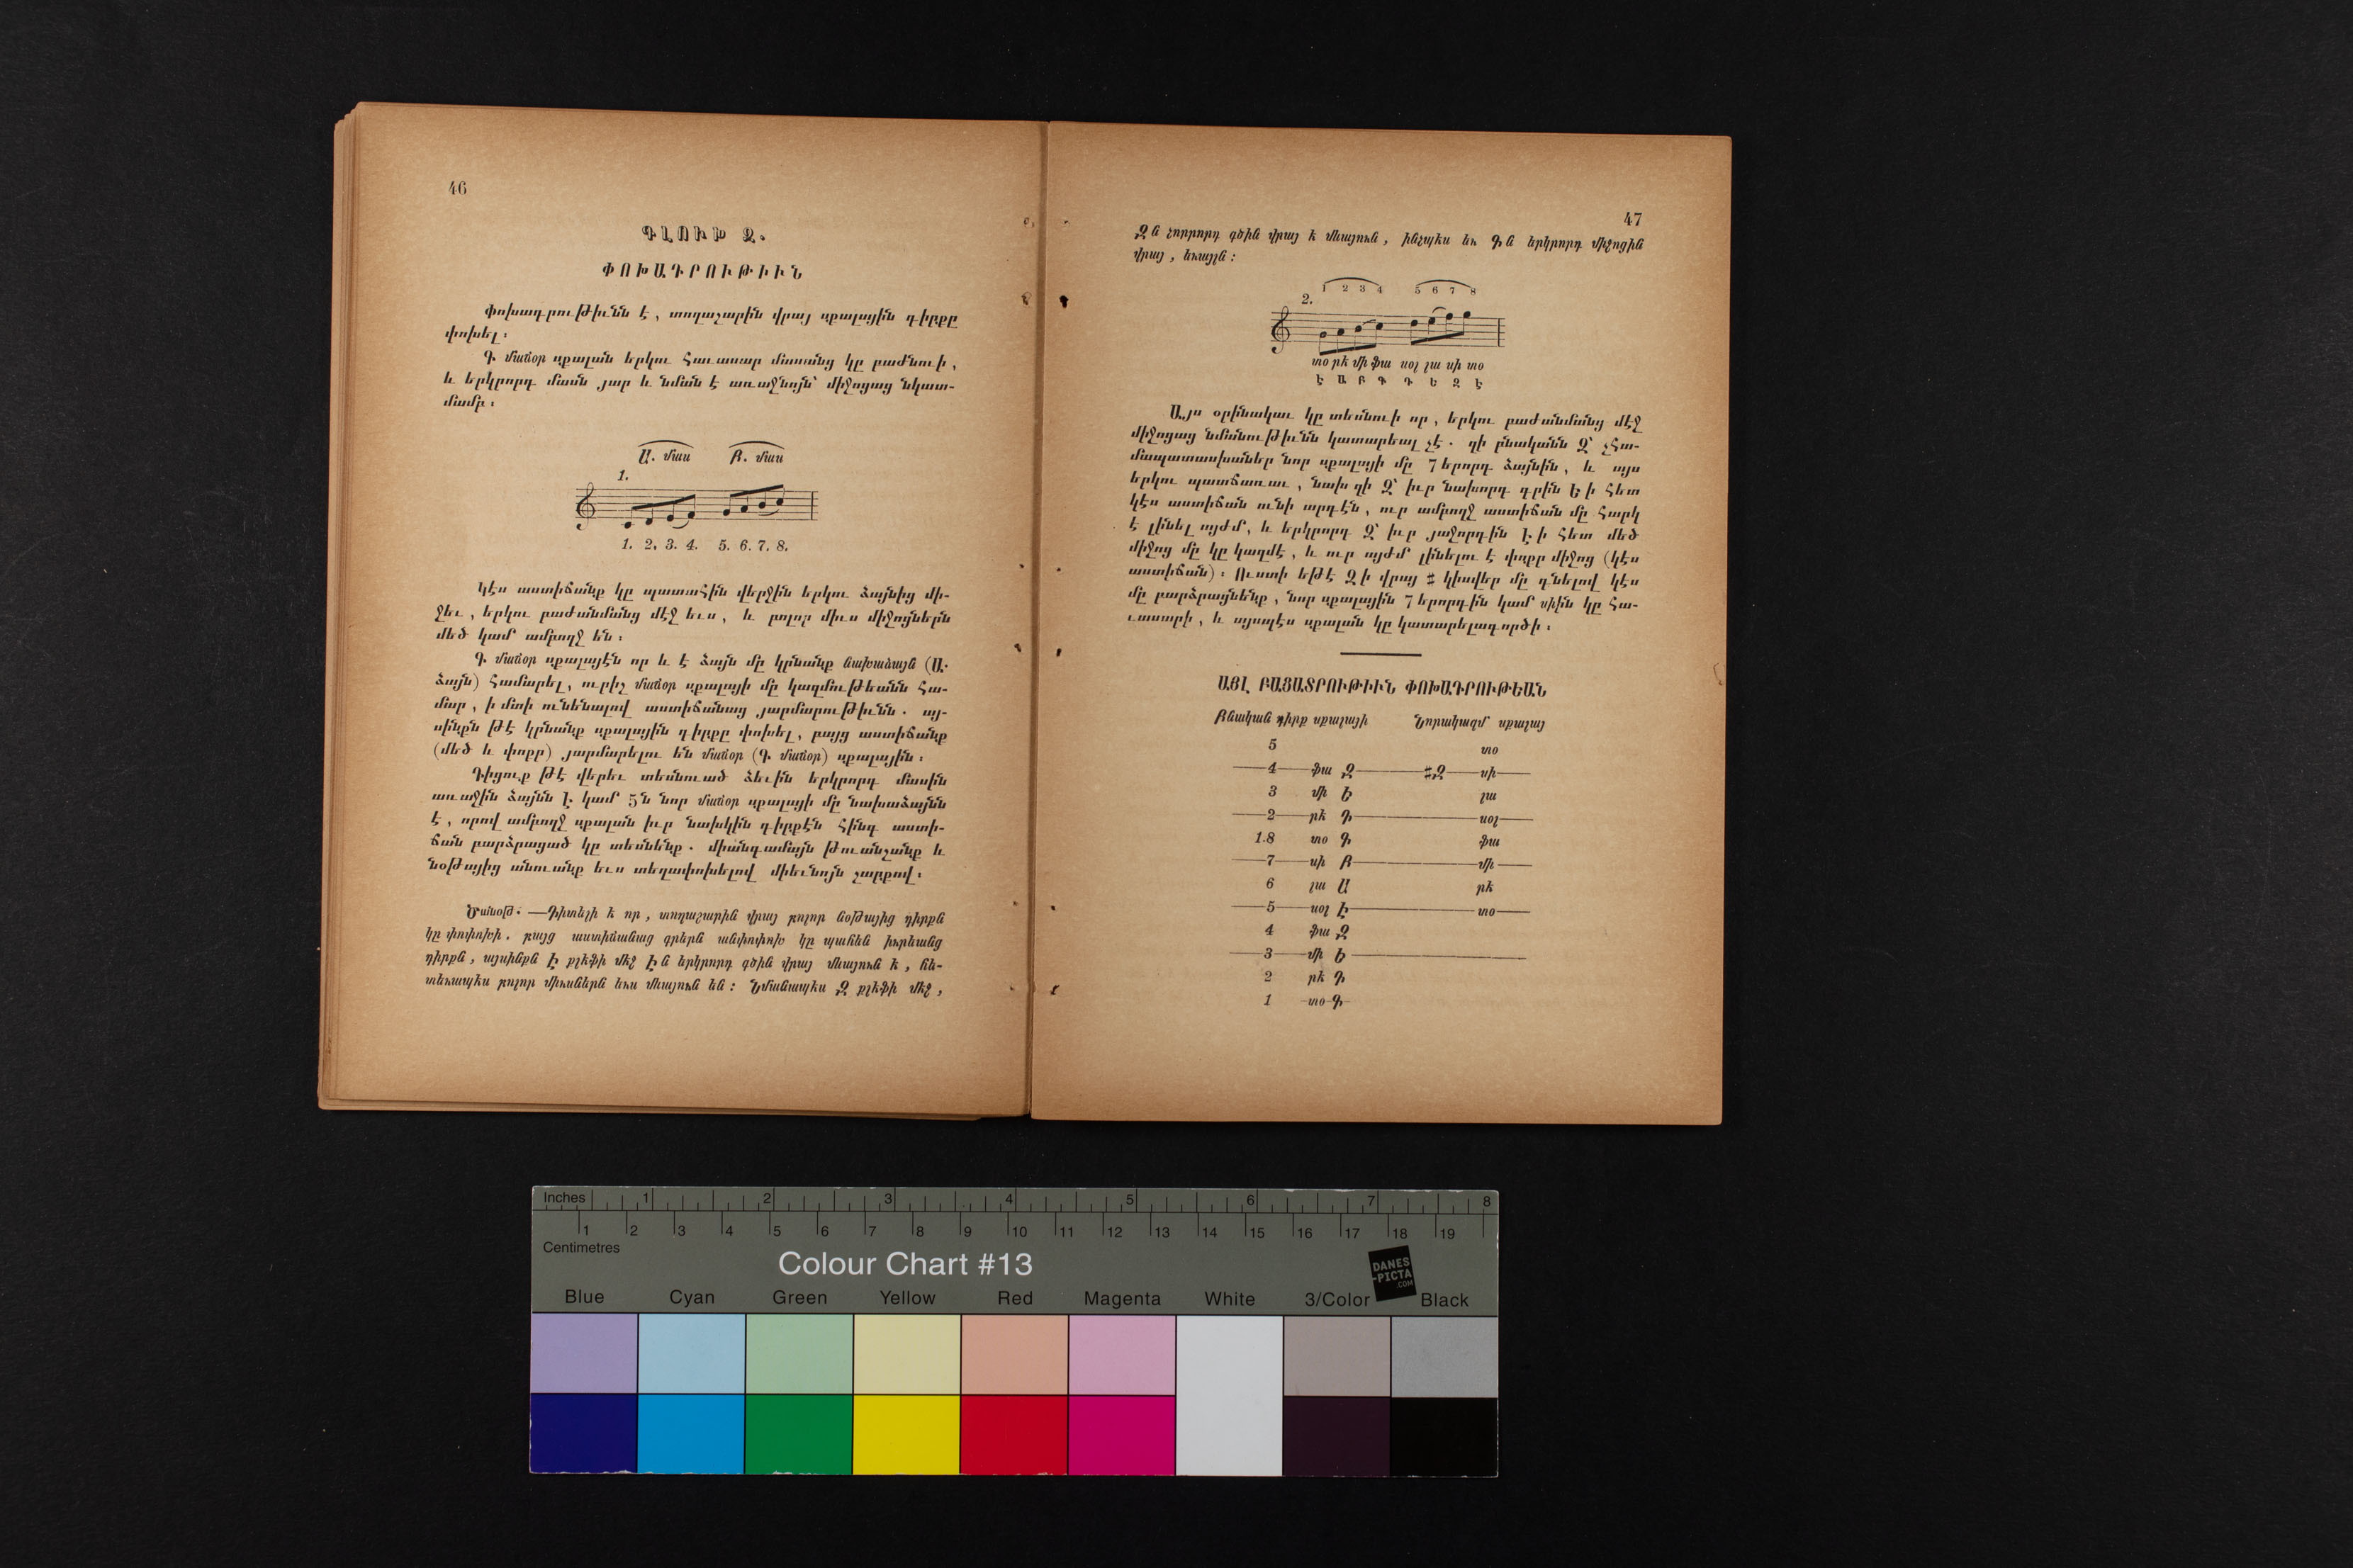 46
ԳԼՈՒԽ Զ.
ՓՈԽԱԴՐՈՒԹԻՒՆ
Փոխադրութիւնն է, տողաշարին վրայ սքալային դիրքը
փոխել։
Գ մաժօր սքալան երկու հաւասար մասանց կը բաժնուի,
և երկրորդ մասն յար և նման է առաջնոյն՝ միջոցաց նկատ-
մամբ։
Ա. մաս Բ. մաս
1.
1. 2. 3. 4. 5. 6. 7. 8.
Կէս աստիճանք կը պատահին վերջին երկու ձայնից մի-
ջեւ, երկու բաժանմանց մէջ եւս, և բոլոր միւս միջոցներն
մեծ կամ ամբողջ են։
Գ մաժօր սքալայէն որ և է ձայն մը կրնանք նախաձայն (Ա.
ձայն) համարել, ուրիշ մաժօր սքալայի մը կազմութեանն հա-
մար, ի մտի ունենալով աստիճանաց յարմարութիւնն. այ-
սինքն թէ կրնանք սքալային դիրքը փոխել, բայց աստիճանք
(մեծ և փոքր) յարմարելու են մաժօր (Գ մաժօր) սքալային։
Դիցուք թէ վերեւ տեսնուած ձեւին երկրորդ մասին
առաջին ձայնն Է կամ 5ն նոր մաժօր սքալայի մը նախաձայնն
է, որով ամբողջ սքալան իւր նախկին դիրքէն հինգ աստի-
ճան բարձրացած կը տեսնենք. միանգամայն թուանշանք և
նօթայից անուանք եւս տեղափոխելով միեւնոյն շարքով։
Ծանօթ. —Դիտելի է որ, տողաշարին վրայ բոլոր նօթայից դիրքն
կը փոփոխի. բայց աստիճանաց գրերն անփոփոխ կը պահեն իւրեանց
դիրքն, այսինքն Է քլէֆի մէջ Է ն երկրորդ գծին վրայ մնայուն է, հե-
տեւապէս բոլոր միւսներն եւս մնայուն են։ Նմանապէս Զ քլէֆի մէջ,
47
Զ ն չորրորդ գծին վրայ է մնայուն, ինչպէս եւ Գ ն երկրորդ միջոցին
վրայ, եւայլն։
1 2 3 4 5 6 7 8
2.
տօ րէ մի ֆա սօլ լա սի տօ
Է Ա Բ Գ Դ Ե Զ Է
Այս օրինակաւ կը տեսնուի որ, երկու բաժանմանց մէջ
միջոցաց նմանութիւնն կատարեալ չէ. զի բնականն Զ՝ չհա-
մապատասխաներ նոր սքալայի մը 7 երորդ ձայնին, և այս
երկու պատճառաւ, նախ զի Զ՝ իւր նախորդ գրին Ե ի հետ
կէս աստիճան ունի արդէն, ուր ամբողջ աստիճան մը հարկ
է լինել այժմ, և երկրորդ Զ՝ իւր յաջորդին Է ի հետ մեծ
միջոց մը կը կազմէ, և ուր այժմ լինելու է փոքր միջոց (կէս
աստիճան)։ Ուստի եթէ Զ ի վրայ ♯ կիսվեր մը դնելով կէս
մը բարձրացնենք, նոր սքալային 7 երորդին կամ սիին կը հա-
ւասարի, և այսպէս սքալան կը կատարելագործի։
ԱՅԼ ԲԱՑԱՏՐՈՒԹԻՒՆ ՓՈԽԱԴՐՈՒԹԵԱՆ
Բնական դիրք սքալայի Նորակազմ սքալայ
5 տօ
4 ֆա Զ ♯Զ սի
3 մի Ե լա
2 րէ Դ սօլ
1.8 տօ Գ ֆա
7 սի Բ մի
6 լա Ա րէ
5 սօլ Է տօ
4 ֆա Զ
3 մի Ե
2 րէ Դ
1 տօ Գ
Inches 1 2 3 4 5 6 7 8
1 2 3 4 5 6 7 8 9 10 11 12 13 14 15 16 17 18 19
Centimetres
Colour Chart #13
DANES
-PICTA
.COM
Blue Cyan Green Yellow Red Magenta White 3/Color Black